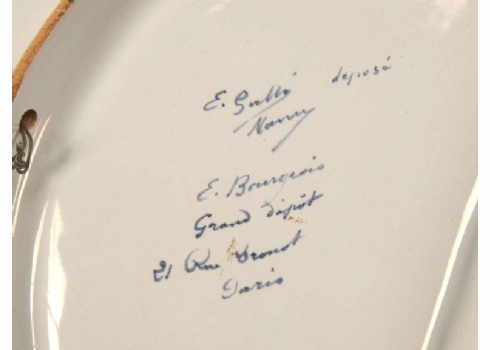 E. Gallé déposé
Nancy
E. Bourgeois
Grand dépôt
21 Rue Drouot
Paris